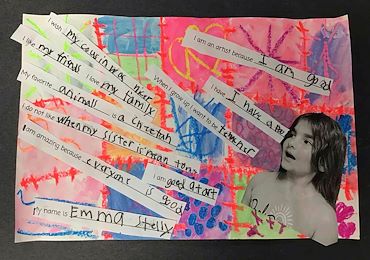 I wish my cousin was here
I like my friends
I love my family
My favorite animal is a cheetah
I do not like when my sister is mean to me
I am amazing because everyone is good
My name is Emma Stelly
I am an artist because I am good
I have I have a
When I grow up, I want to be teacher
I am good at art